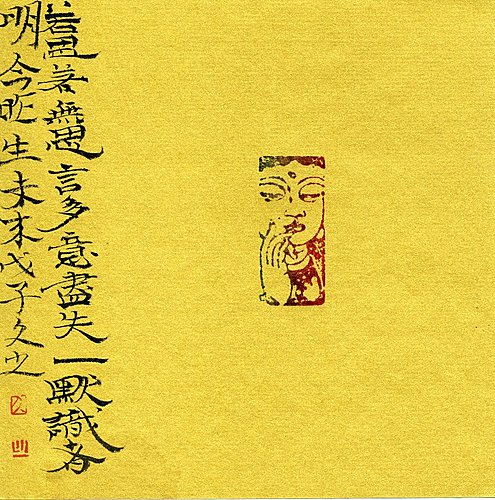 若思若無思言多意盡失一默識者
明今昨生未末戊子久之